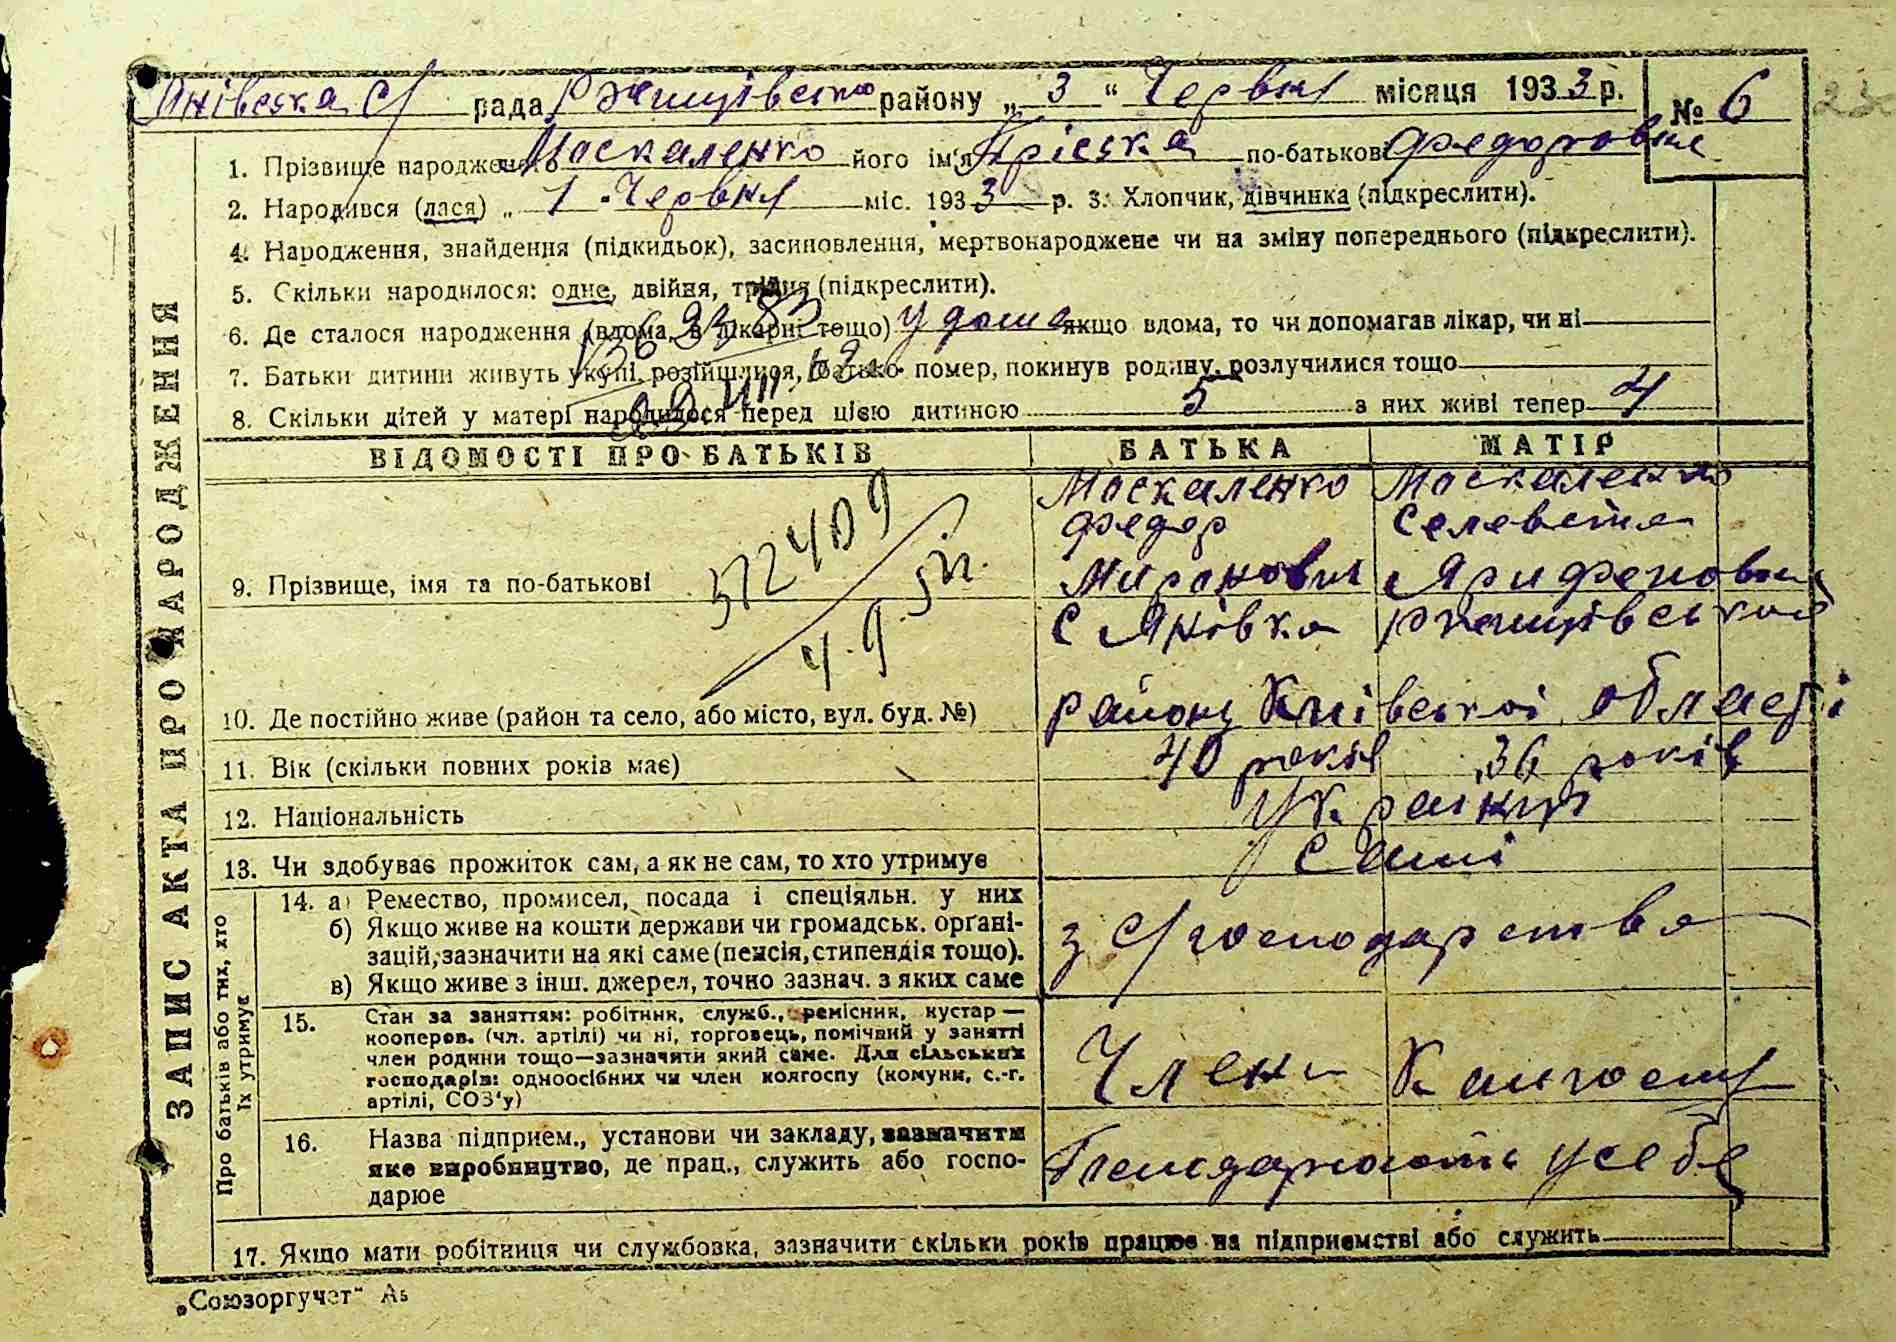 Янівська с/ рада Ржищівсько району „ 3 “ Червня місяця 1933 р. № 6
1. Прізвище народжен Москаленко його ім'я Пріська по-батькові Федоровна
2. Народився (лася) „ 1 " Червня міс. 1933 р. 3. Хлопчик, дівчинка (підкреслити).
4. Народження, знайдення (підкидьок), засиновлення, мертвонароджене чи на зміну попереднього (підкреслити).
5. Скільки народилося: одне, двійня, трійня (підкреслити).
6. Де сталося народження (вдома, в лікарні тощо) у дома якщо вдома, то чи допомагав лікар, чи ні
7. Батьки дитини живуть укупі, розійшлися, батько помер, покинув родину, розлучилися тощо
8. Скільки дітей у матері народилося перед цією дитиною 5 з них живі тепер 4
ВІДОМОСТІ ПРО БАТЬКІВ БАТЬКА МАТІР
Москаленко Москаленко
Федор Селевстя
9. Прізвище, імя та по-батькові Миронович
с Янівка Ржищівської
10. Де постійно живе (район та село, або місто, вул. буд. №) району Київської області
11. Вік (скільки повних років має) 40 років 36 років
12. Національність Українці
13. Чи здобуває прожиток сам, а як не сам, то хто утримує самі
14. а) Ремество, промисел, посада і спеціяльн. у них
б) Якщо живе на кошти держави чи громадськ. орґані-
зацій, зазначити на які саме (пенсія, стипендія тощо).
в) Якщо живе з інш. джерел, точно зазнач. з яких саме
з с/господарства
15. Стан за заняттям: робітник, служб., ремісник, кустар —
кооперов. (чл. артілі) чи ні, торговець, помічний у занятті
член родини тощо—зазначити який саме. Для сільських
господарів: одноосібних чи член колгоспу (комуни, с.-г.
артілі, СОЗ'у)
Члени Колгоспу
16. Назва підприєм., установи чи закладу, зазначити
яке виробництво, де прац., служить або госпо-
дарює
у себе
17. Якщо мати робітниця чи службовка, зазначити скільки років працює на підприємстві або служить
ЗАПИС АКТА ПРО НАРОДЖЕННЯ
Про батьків або тих, хто
їх утримує
„Союзоргучет“